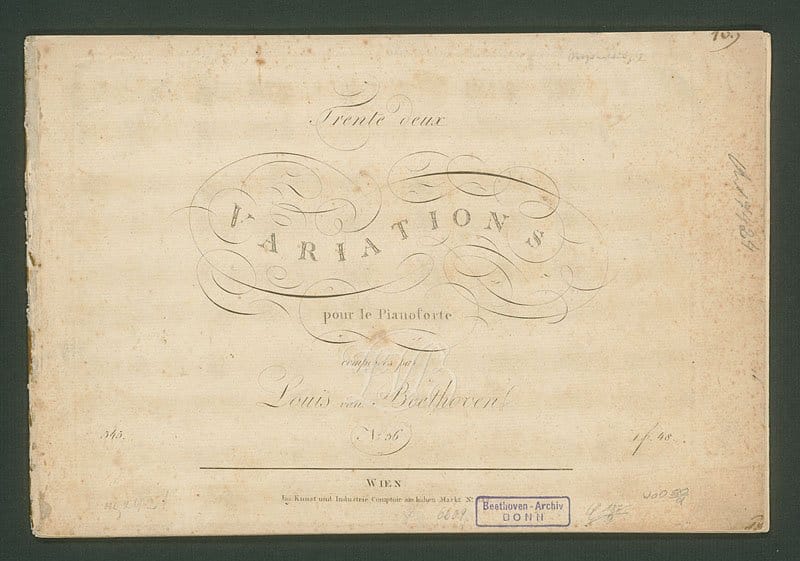 Trente deux
VARIATIONS
pour le Pianoforte
composées par
Louis van Beethoven
№ 36
545.
1 f. 48.
WIEN
Im Kunst und Industrie Comptoir am hohen Markt №
Beethoven-Archiv
BONN
6639
WoO 80